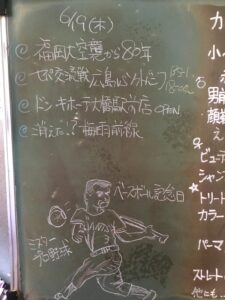 6/19(木)
福岡大空襲から80年
セパ交流戦 広島vsソフトバンク
ドン・キホーテ大橋駅前店 OPEN
消えた!?梅雨前線
ベースボール記念日
ミスター
プロ野球
カ
小
男
顔
え
ビューテ
シャン
トリート
カラー
パーマ
ストレート
他にも